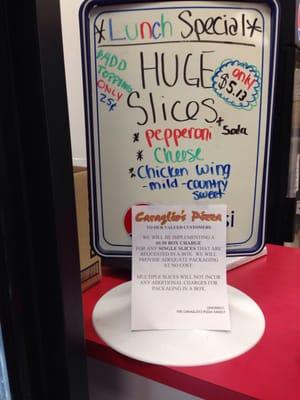 *Lunch Special*
*ADD
TOPPING
ONLY
25¢
HUGE
only
$5.12
Slices
*pepperoni
*Soda
*Cheese
*Chicken wing
-mild -country
sweet
Caraglio's Pizza
TO OUR VALUED CUSTOMERS
WE WILL BE IMPLEMENTING A
$0.50 BOX CHARGE
FOR ANY SINGLE SLICES THAT ARE
REQUESTED IN A BOX. WE WILL
PROVIDE ADEQUATE PACKAGING
AT NO COST.
MULTIPLE SLICES WILL NOT INCUR
ANY ADDITIONAL CHARGES FOR
PACKAGING IN A BOX.
SINCERELY,
THE CARAGLIO'S PIZZA FAMILY
si